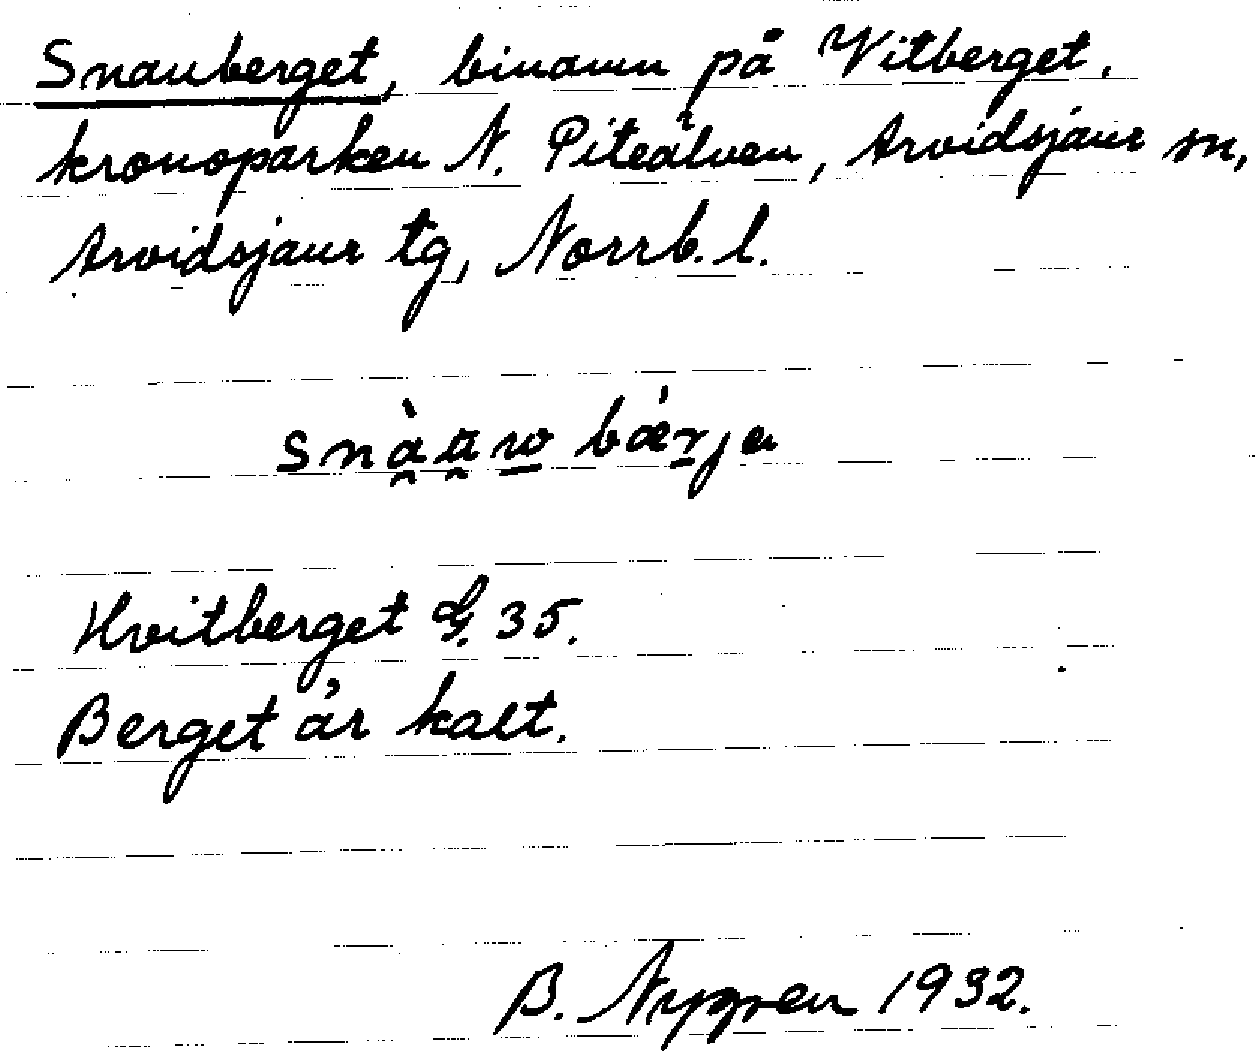 Snauberget, binamn på Vitberget,
kronoparken N. Piteälven, Arvidsjaur sn,
Arvidsjaur tg, Norrb. l.
Hvitberget G. 35.
Berget är kalt.
B. Nygren 1932.